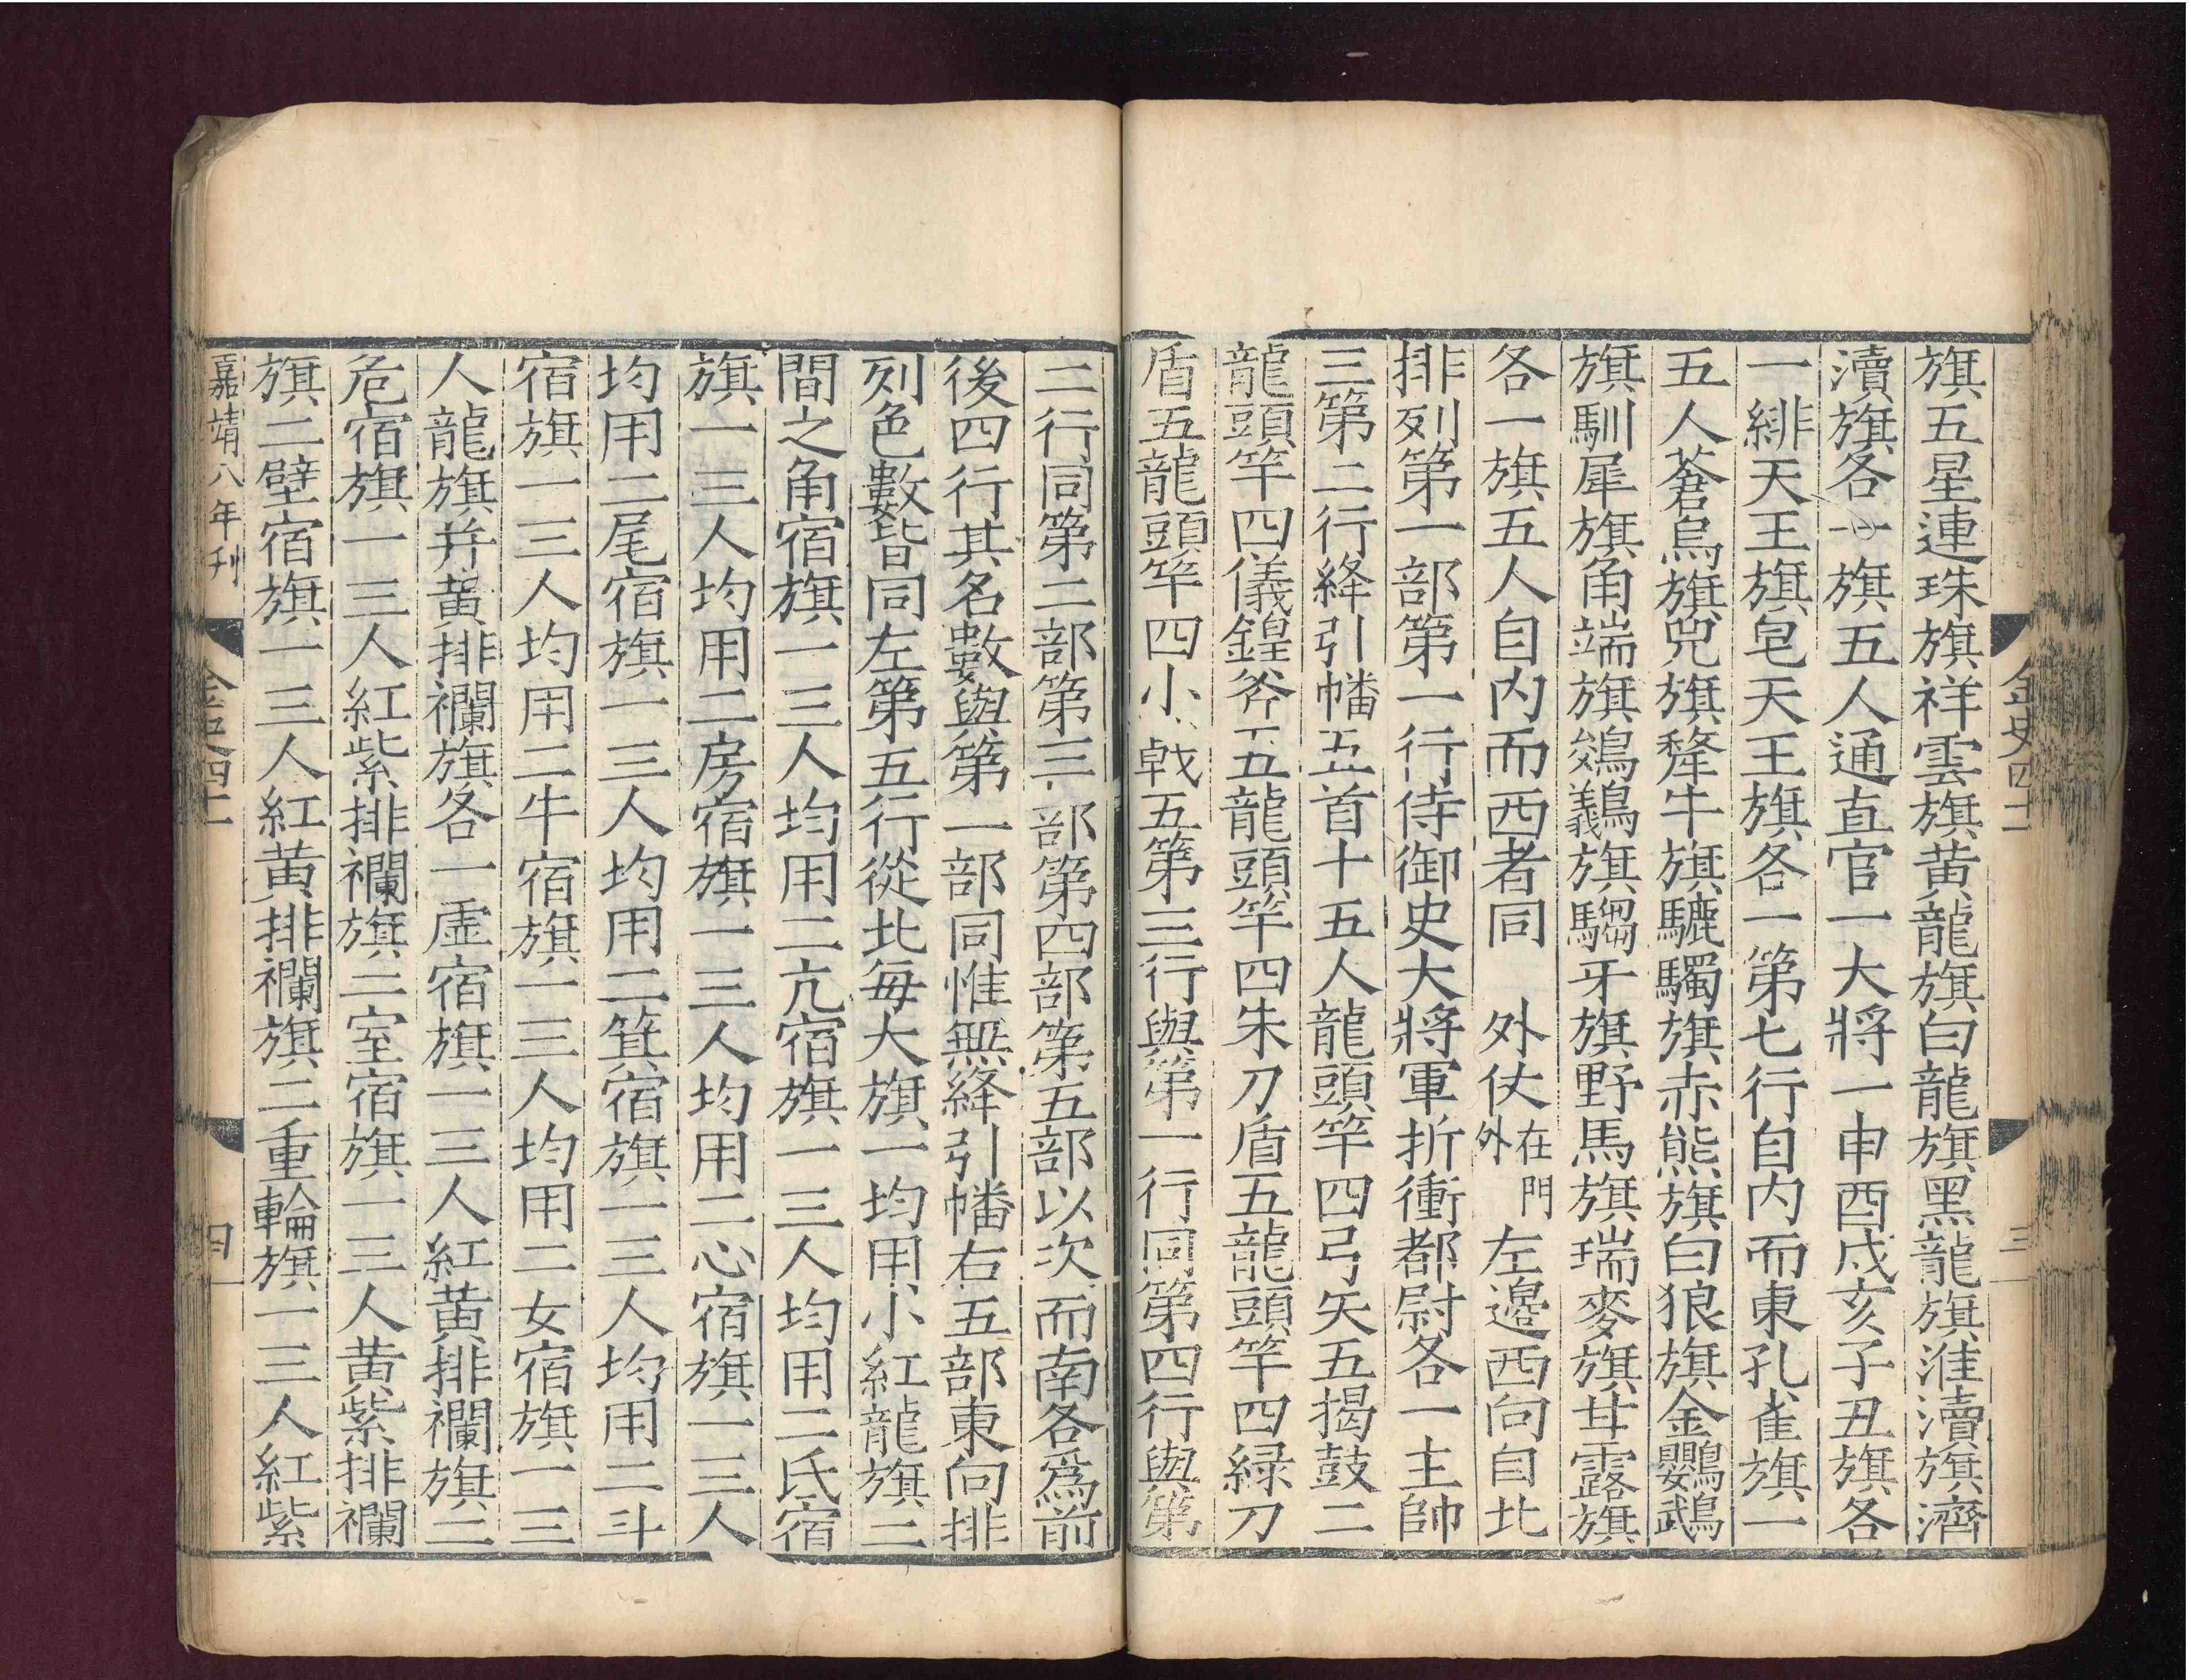 旗五星連珠旗祥雲旗黄龍旗白龍旗黑龍旗淮瀆旗濟
瀆旗各一旗五人通直官一大將一申酉戌亥子丑旗各
一緋天王旗皂天王旗各一第七行自内而東孔雀旗一
五人蒼烏旗兕旗犛牛旗騼驧旗赤熊旗白狼旗金鸚鵡
旗馴犀旗角端旗鵕鸃旗騶牙旗野馬旗瑞麥旗甘露旗
各一旗五人自内而西者同 外仗在門外左邊西向自北
排列第一部第一行侍御史大將軍折衝都尉各一主帥
三第二行絳引幡五首十五人龍頭竿四弓矢五揭鼓二
龍頭竿四儀鍠斧五龍頭竿四朱刀盾五龍頭竿四緑刀
盾五龍頭竿四小戟五第三行與第一行同第四行與第
金史四十一
三
二行同第二部第三部第四部第五部以次而南各爲前
後四行其名數與第一部同惟無絳引幡右五部東向排
列色數皆同左第五行從北每大旗一均用小紅龍旗二
間之角宿旗一三人均用二亢宿旗一三人均用二氐宿
旗一三人均用二房宿旗一三人均用二心宿旗一三人
均用二尾宿旗一三人均用二箕宿旗一三人均用二斗
宿旗一三人均用二牛宿旗一三人均用二女宿旗一三
人龍旗并黄排襴旗各一虚宿旗一三人紅黄排襴旗二
危宿旗一三人紅紫排襴旗二室宿旗一三人黄紫排襴
旗二壁宿旗一三人紅黄排襴旗二重輪旗一三人紅紫
嘉靖八年刊
四